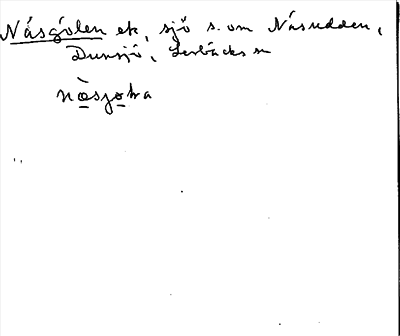 Näsgölen ek, sjö s. om Näsudden,
Dunsjö, Lerbäcks sn